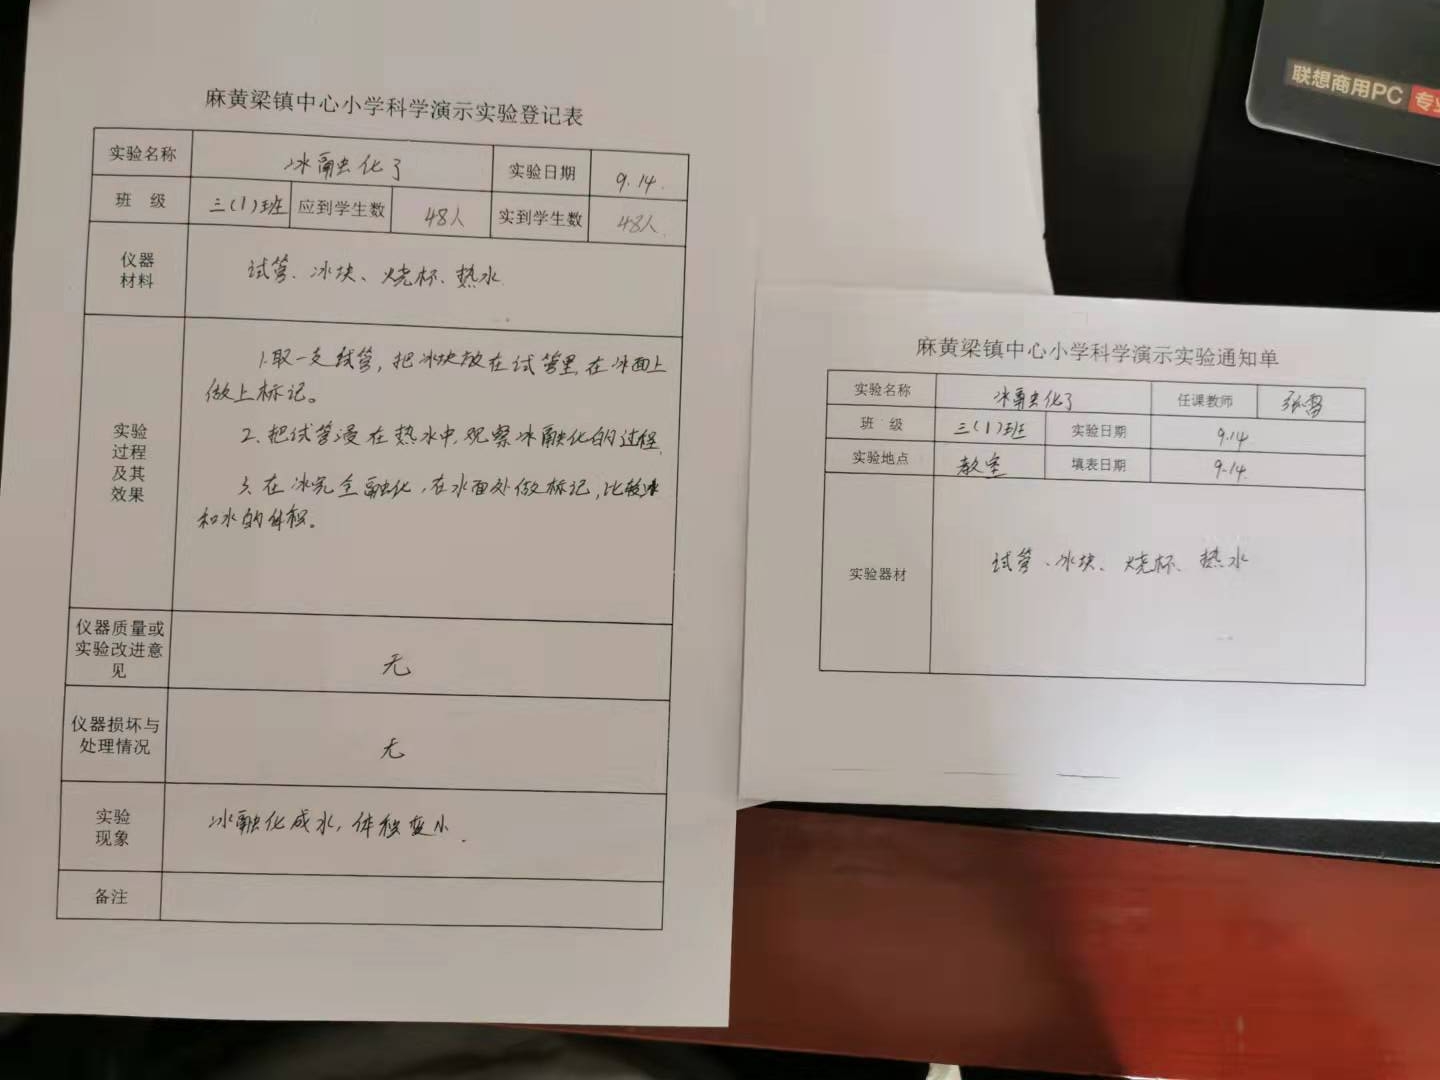 麻黄梁镇中心小学科学演示实验登记表
实验名称 冰融化了 实验日期 9.14.
班 级 三(1)班 应到学生数 48人 实到学生数 48人
仪器
材料
试管、冰块、烧杯、热水
实验
过程
及其
效果
1.取一支试管,把冰块放在试管里,在冰面上
做上标记。
2.把试管浸在热水中,观察冰融化的过程.
3.在冰完全融化,在水面处做标记,比较冰
和水的体积。
仪器质量或
实验改进意
见
无
仪器损坏与
处理情况
无
实验
现象
冰融化成水,体积变小.
备注
联想商用PC 专业
麻黄梁镇中心小学科学演示实验通知单
实验名称 冰融化了 任课教师
班 级 三(1)班 实验日期 9.14
实验地点 教室 填表日期 9.14.
实验器材 试管、冰块、烧杯、热水